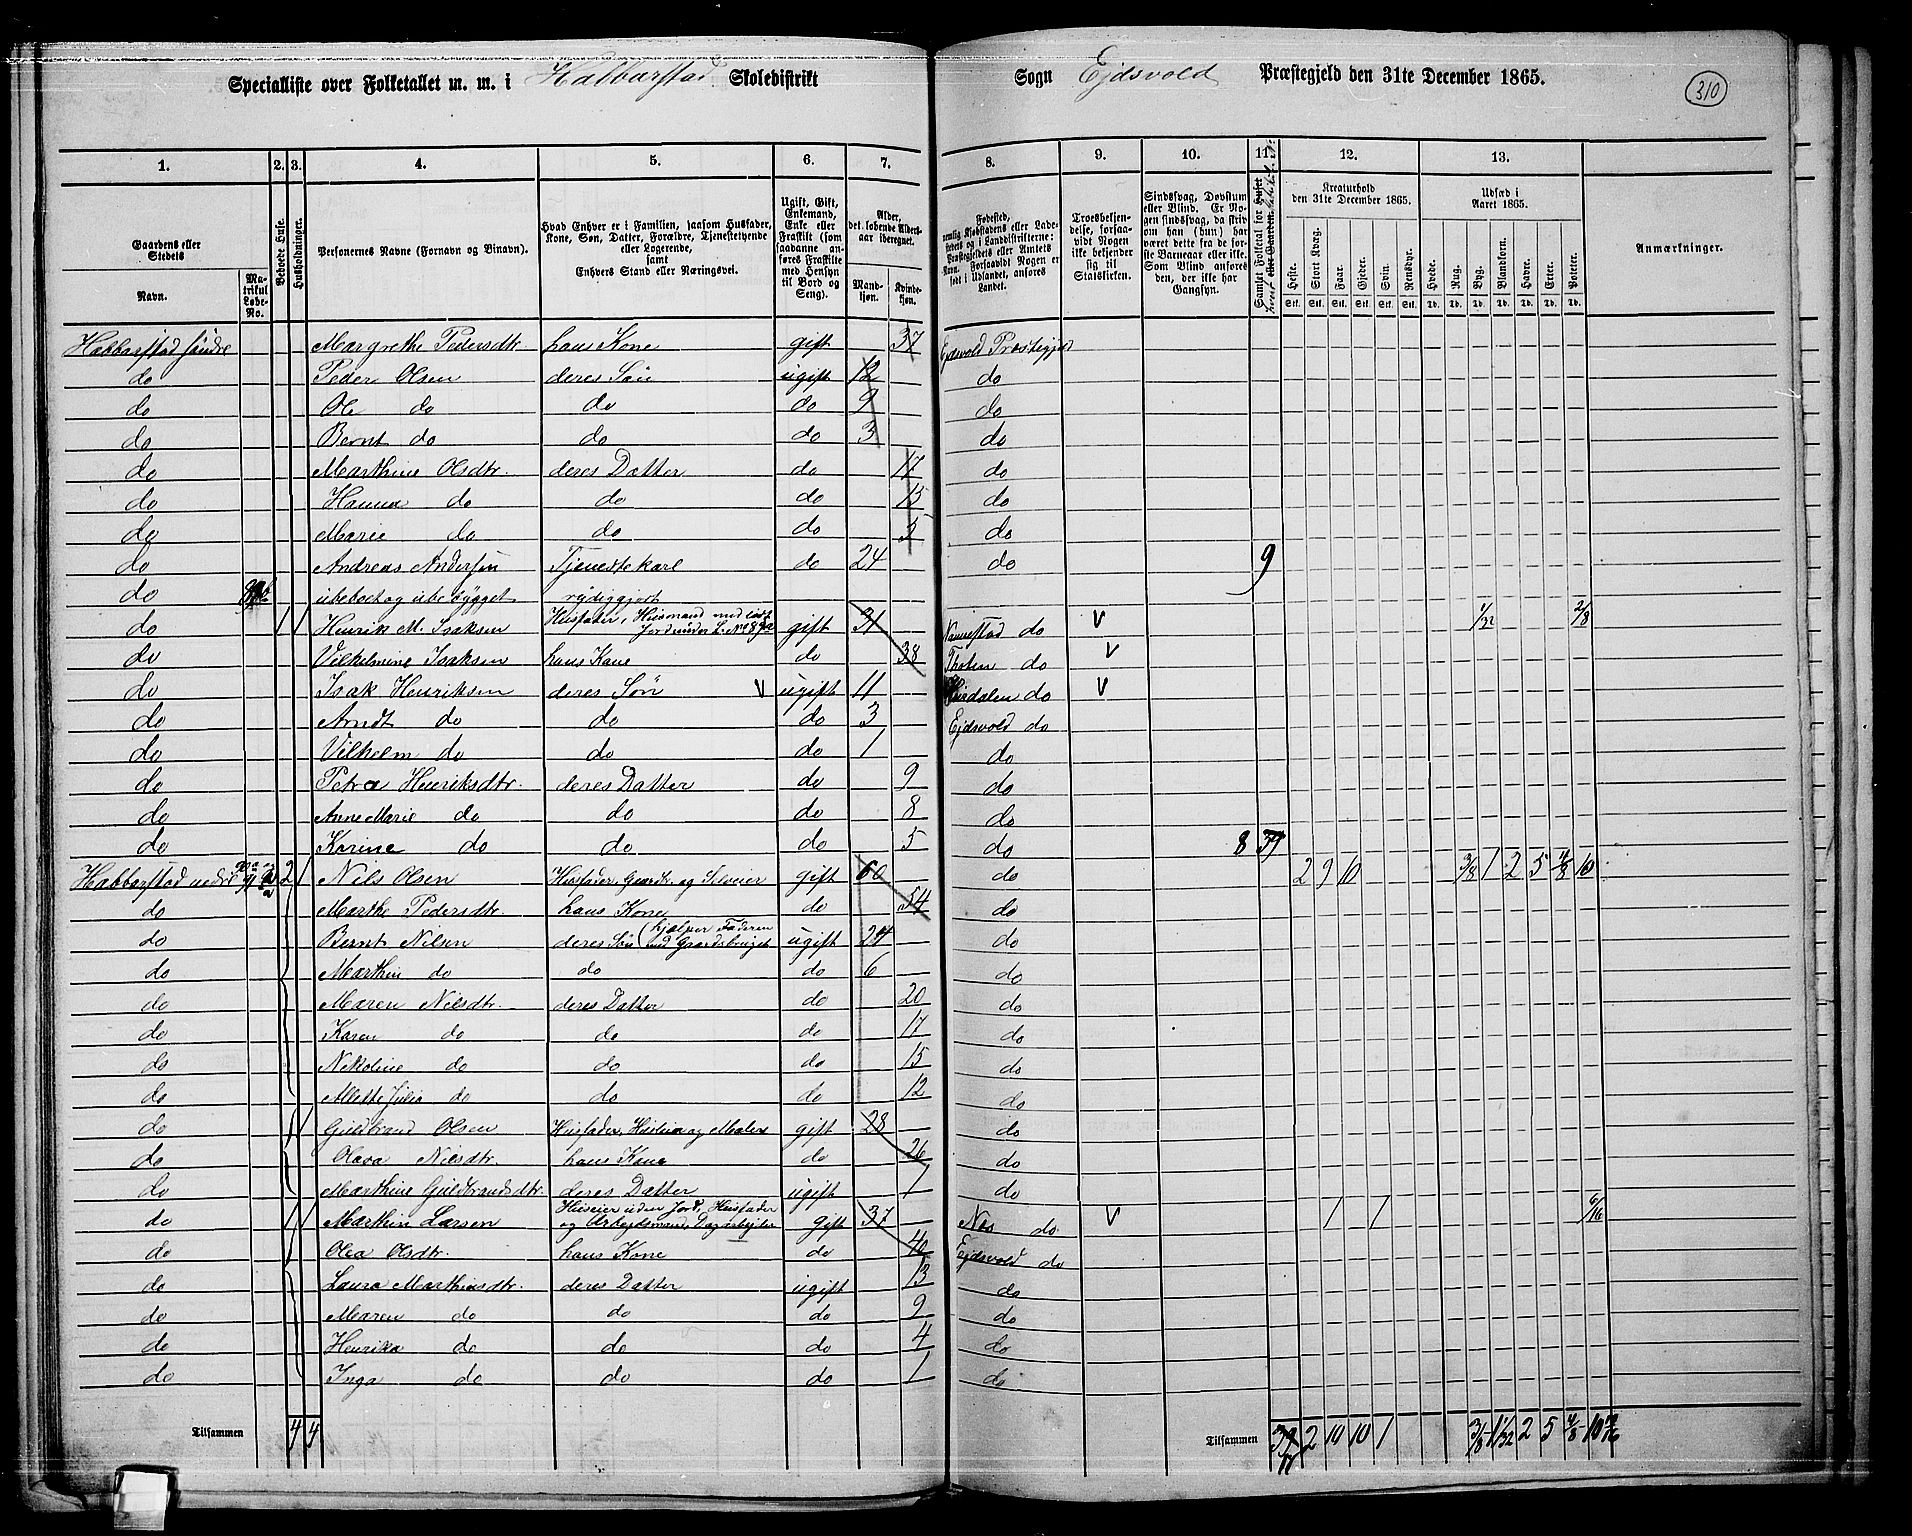 310
Specialliste over Folketallet m. m. i Habbarstad Skoledistrikt Sogn Ejdsvold Præstegjeld den 31te December 1865.
1. 2. 3. 4. 5. 6. 7. 8. 9. 10. 11. 12. 13.
Gaardens eller Stedets Navn. Matrikul Løbe-No. Beboede Huse. Husholdninger. Personernes Navne (Fornavn og Tilnavn). Hvad Enhver er i Familien, saasom Husfader, Kone, Søn, Datter, Forældre, Tjenestetyende eller Logerende, samt Enhvers Stand eller Næringsvei. Ugift, Gift, Enkemand, Enke eller Fraskilt (som saadanne anføres Fraskilte med Hensyn til Bord og Seng). Alder, det løbende Aldersaar iberegnet. Mandkjøn. Kvindekjøn.
Troesbekjendelse, forsaavidt Nogen ikke bekjender sig til Statskirken. Sindssvag, Døvstum eller Blind. Er Nogen sindssvag, da skrives om han (hun) har været dette fra de første Barneaar af. Som Blind anføres den, der ikke har Gangsyn. Kreaturhold den 31te December 1865. Heste. Stort Kvæg. Faar. Gjeder. Svin. Rensdyr. Udsæd i Aaret 1865. Hvede. Rug. Byg. Blandkorn. Havre. Erter. Poteter. Anmærkninger.
Habbarstad søndre Margrethe Pedersdtr. hans Kone gift 37 Ejdsvold Præstegjeld
do Peder Olsen deres Søn ugift 12 do
do Ole do do do 9 do
do Bernt do do do 3 do
do Marthine Olsdtr. deres Datter do 17 do
do Hanna do do do 15 do
do Marie do do do 5 do
do Andreas Andersen Tjenestekarl do 24 do 9
do ubeboet og ubebygget
do 1 1 Henrik M. Isaksen Husfader, Husmand med Jord gift 31 do V 1/32 2/8
do Vilhelmine Isaksen hans Kone do 38 Thoten do V
do Isak Henriksen deres Søn V ugift 11 do V
do Arndt do do do 3 Ejdsvold do
do Vilhelm do do do 1 do
do Petra Henriksdtr. deres Datter do 9 do
do Anne Marie do do do 8 do
do Karine do do do 5 do 8
Habbarstad nedre 2 1 Nils Olsen Husfader, Gaardbr. og Selveier gift 60 do 2 9 10 3/8 1 2 5 4/8 10
do Marthe Pedersdtr. hans Kone do 54 do
do Bernt Nilsen deres Søn (hjælper Faderen med Gaardsbruget ugift 24 do
do Marthin do do do 6 do
do Maren Nilsdtr. deres Datter do 20 do
do Karen do do do 17 do
do Nikoline do do do 15 do
do Mette Julia do do do 12 do
do 1 Guldbrand Olsen Husfader, og Maler gift 28 do
do Olava Nilsdtr. hans Kone do 26 do
do Marthine Guldbrandsdtr. deres Datter ugift 1 do
do 1 1 Marthin Larsen Huseier uden Jord, Husfader og Arbeidsmand, Dagarbejder gift 37 Nes do V 1 1 6/16
do Olea Olsdtr. hans Kone do 40 Ejdsvold do
do Laura Marthinsdtr. deres Datter ugift 13 do
do Maren do do do 9 do
do Henrika do do do 4 do
do Inga do do do 1 do
Tilsammen 4 4 Tilsammen 2 10 10 1 3/8 1 1/32 2 5 4/8 10